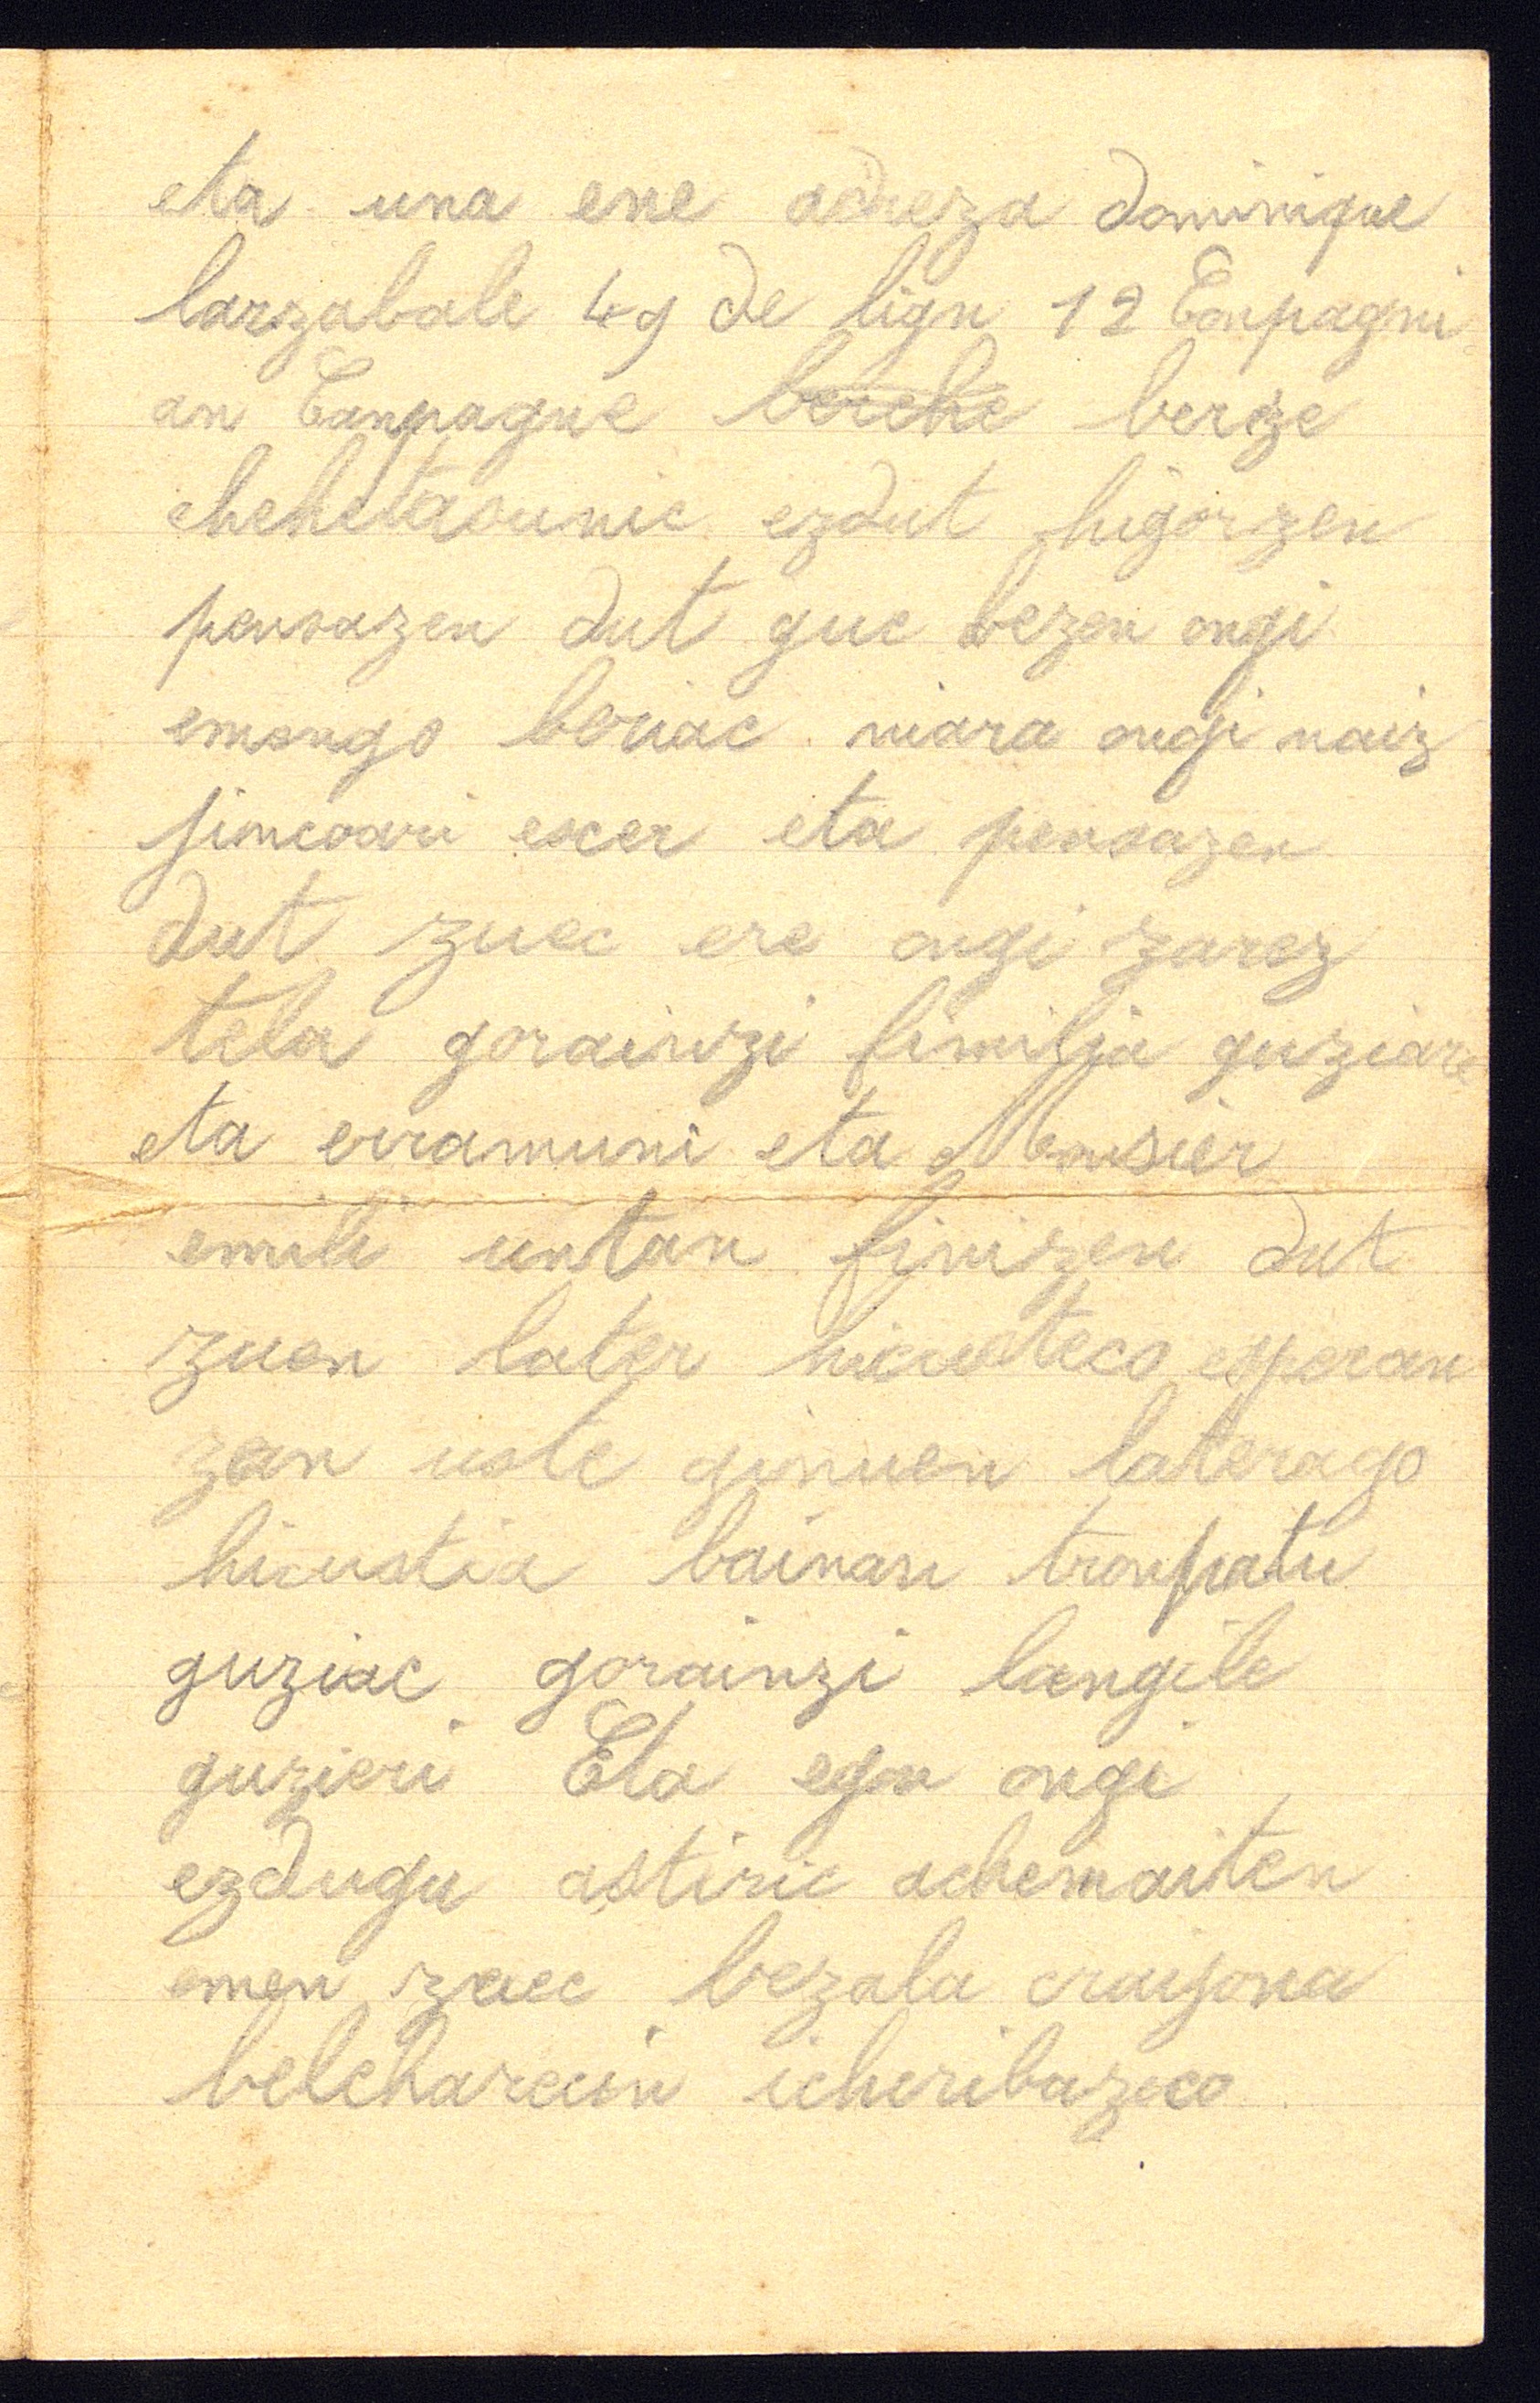 eta una ene adreza dominique
larzabale 49 de lign 12 Conpagni
an Canpagne berche berze
chehetasunic ezdut higorzen
pensazen dut guc bezen ongi
emango beriac niara ongi naiz
jincoari escer eta pensazen
dut zuec ere ongi zarez
tela gorainzi fimilia guziare
eta erramuni eta Monsier
emili untan finizen dut
zuen later hicusteco esperan
zan uste ginuen laterago
hicustia bainan tronpatu
guziac gorainzi langile
guzieri Eta egon ongi
ezdugu astiric achemaiten
emen zuec bezala craiona
belcharecin ichiribazeco